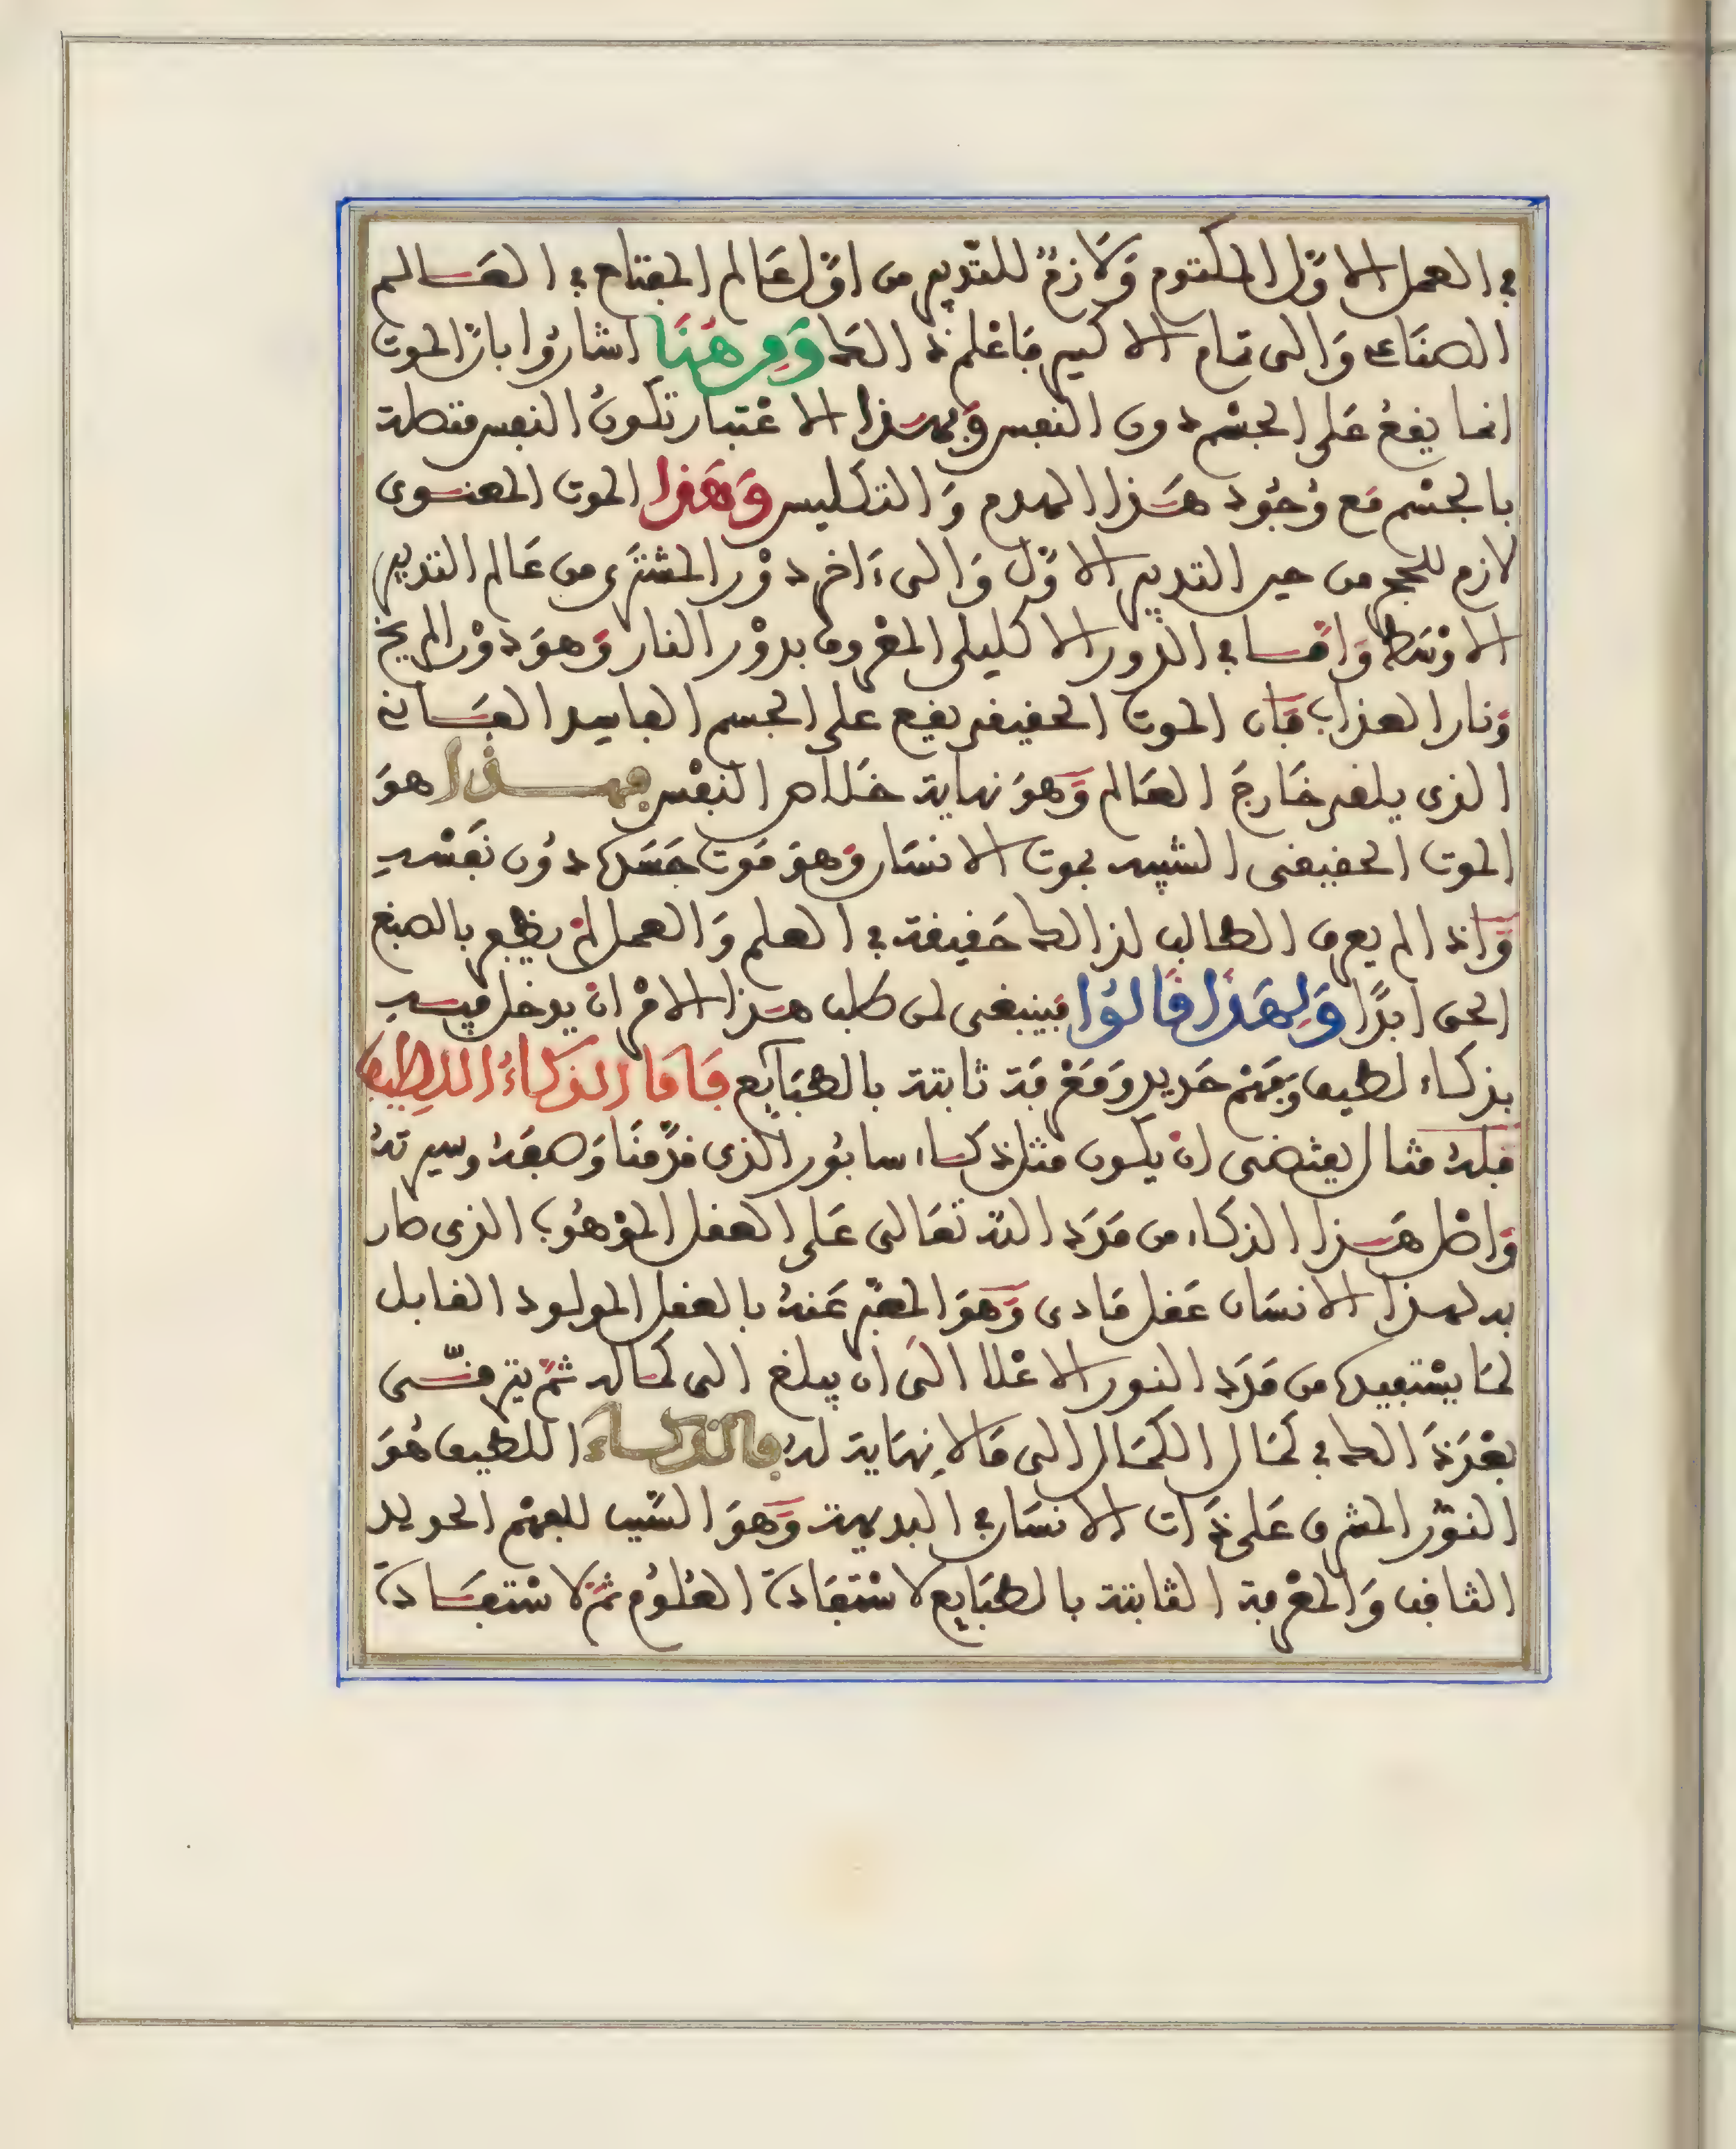 في العمل الاوّل المكتوم وَلازمٌ للتدبير من اوّل عَالم المفتاح في العَالم
الصنَاعي وَالى تمام الاكسير فاعْلم ذالك وَمِن هُنَا اشارُوا بانّ الموت
انما يقعُ عَلى الجسْم دون النفس وَبهذا الاعْتبار تكونُ النفس متصلة
بالجسْم مَع وُجُود هَذا الهدم وَالتكليس وَهَذا الموت المعنوى
لازم للحجر من حين التدبير الاوّل وَالى ءَاخر دوْر المشترى من عَالم التدبير
الاوْسَط وَامّا في الدور الاكليلى المعْروف بدوْر النار وَهوَ دوْر المريخ
وَنار العذاب فَان الموت الحقيقى يقع على الجسم الفاسد الفَانى
الذى يلقى خَارجَ العَالم وَهوَ نهاية خلاص النفْس فهذا هوَ
الموت الحقيقى الشبيه بموت الانسَان وَهوَ مَوت جَسَده دُون نَفْسه
وَاذا لم يعرف الطالب لذالك حَقيقة في العلم وَالعمل لمْ يظفر بالصبغ
الحق ابدًا وَلِهَذَا قَالوُا فينبغى لمن طلب هذا الامْر انْ يدخل فيه
بذكاء لطيف وَفهْم حَديد وَمَعْرفَة ثابتة بالطبَايع فَامَّا الذكاءُ اللطيف
فلهُ مثال يقتضى انْ يكون مثل ذكاء سابُور الذى قدّمنَا وَصفَهُ وسيرتهُ
وَاصْل هَذا الذكاء من مَدَد الله تعَالى عَلى العقل المَوْهُوب الذى صار
به لهذا الانسَان عَقل مَادى وَهوَ المعبّر عَنهُ بالعقل المولود القابل
لمَا يسْتفيده من مَدَد النور الاعْلا الىَ ان يبلغ الى كماله ثمّ يترقّى
بعْدَ ذَالك في كمَال الكمَال الى مَا لا نِهَاية لهُ فالذكاءُ اللطيف هُوَ
النوّر المشرق عَلى ذَات الانسَان في البديهة وَهوَ السّبب للفهْم الحديد
الثاقب وَالمعْرفة الثابتة بالطبَايع لاسْتفَادة العُلوُم ثمّ لاسْتفَادة